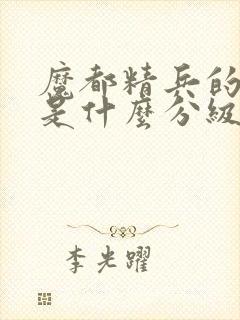 魔都精兵的
是什麼分級
李光躍